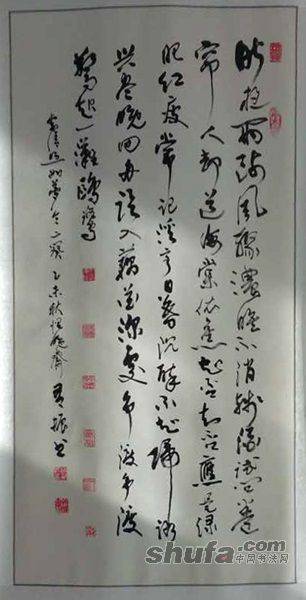 昨夜雨疏風驟濃睡不消殘酒試問卷
帘人却道海棠依舊知否知否應是绿
肥红瘦常記溪亭日暮沉醉不知歸路
興盡晚回舟誤入藕花深處争渡争渡
驚起一灘鷗鹭
李清照如夢令二阕乙未秋
shufa.com
中国书法网